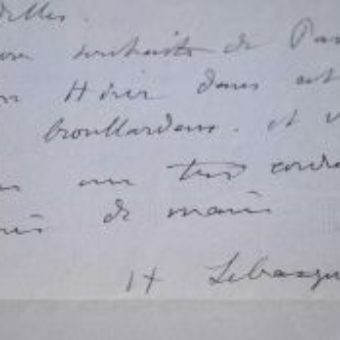 delles.
souhaits de Pa
Hier dans
brouillardeux. et v
un très corde
de mains
H Lebasqu